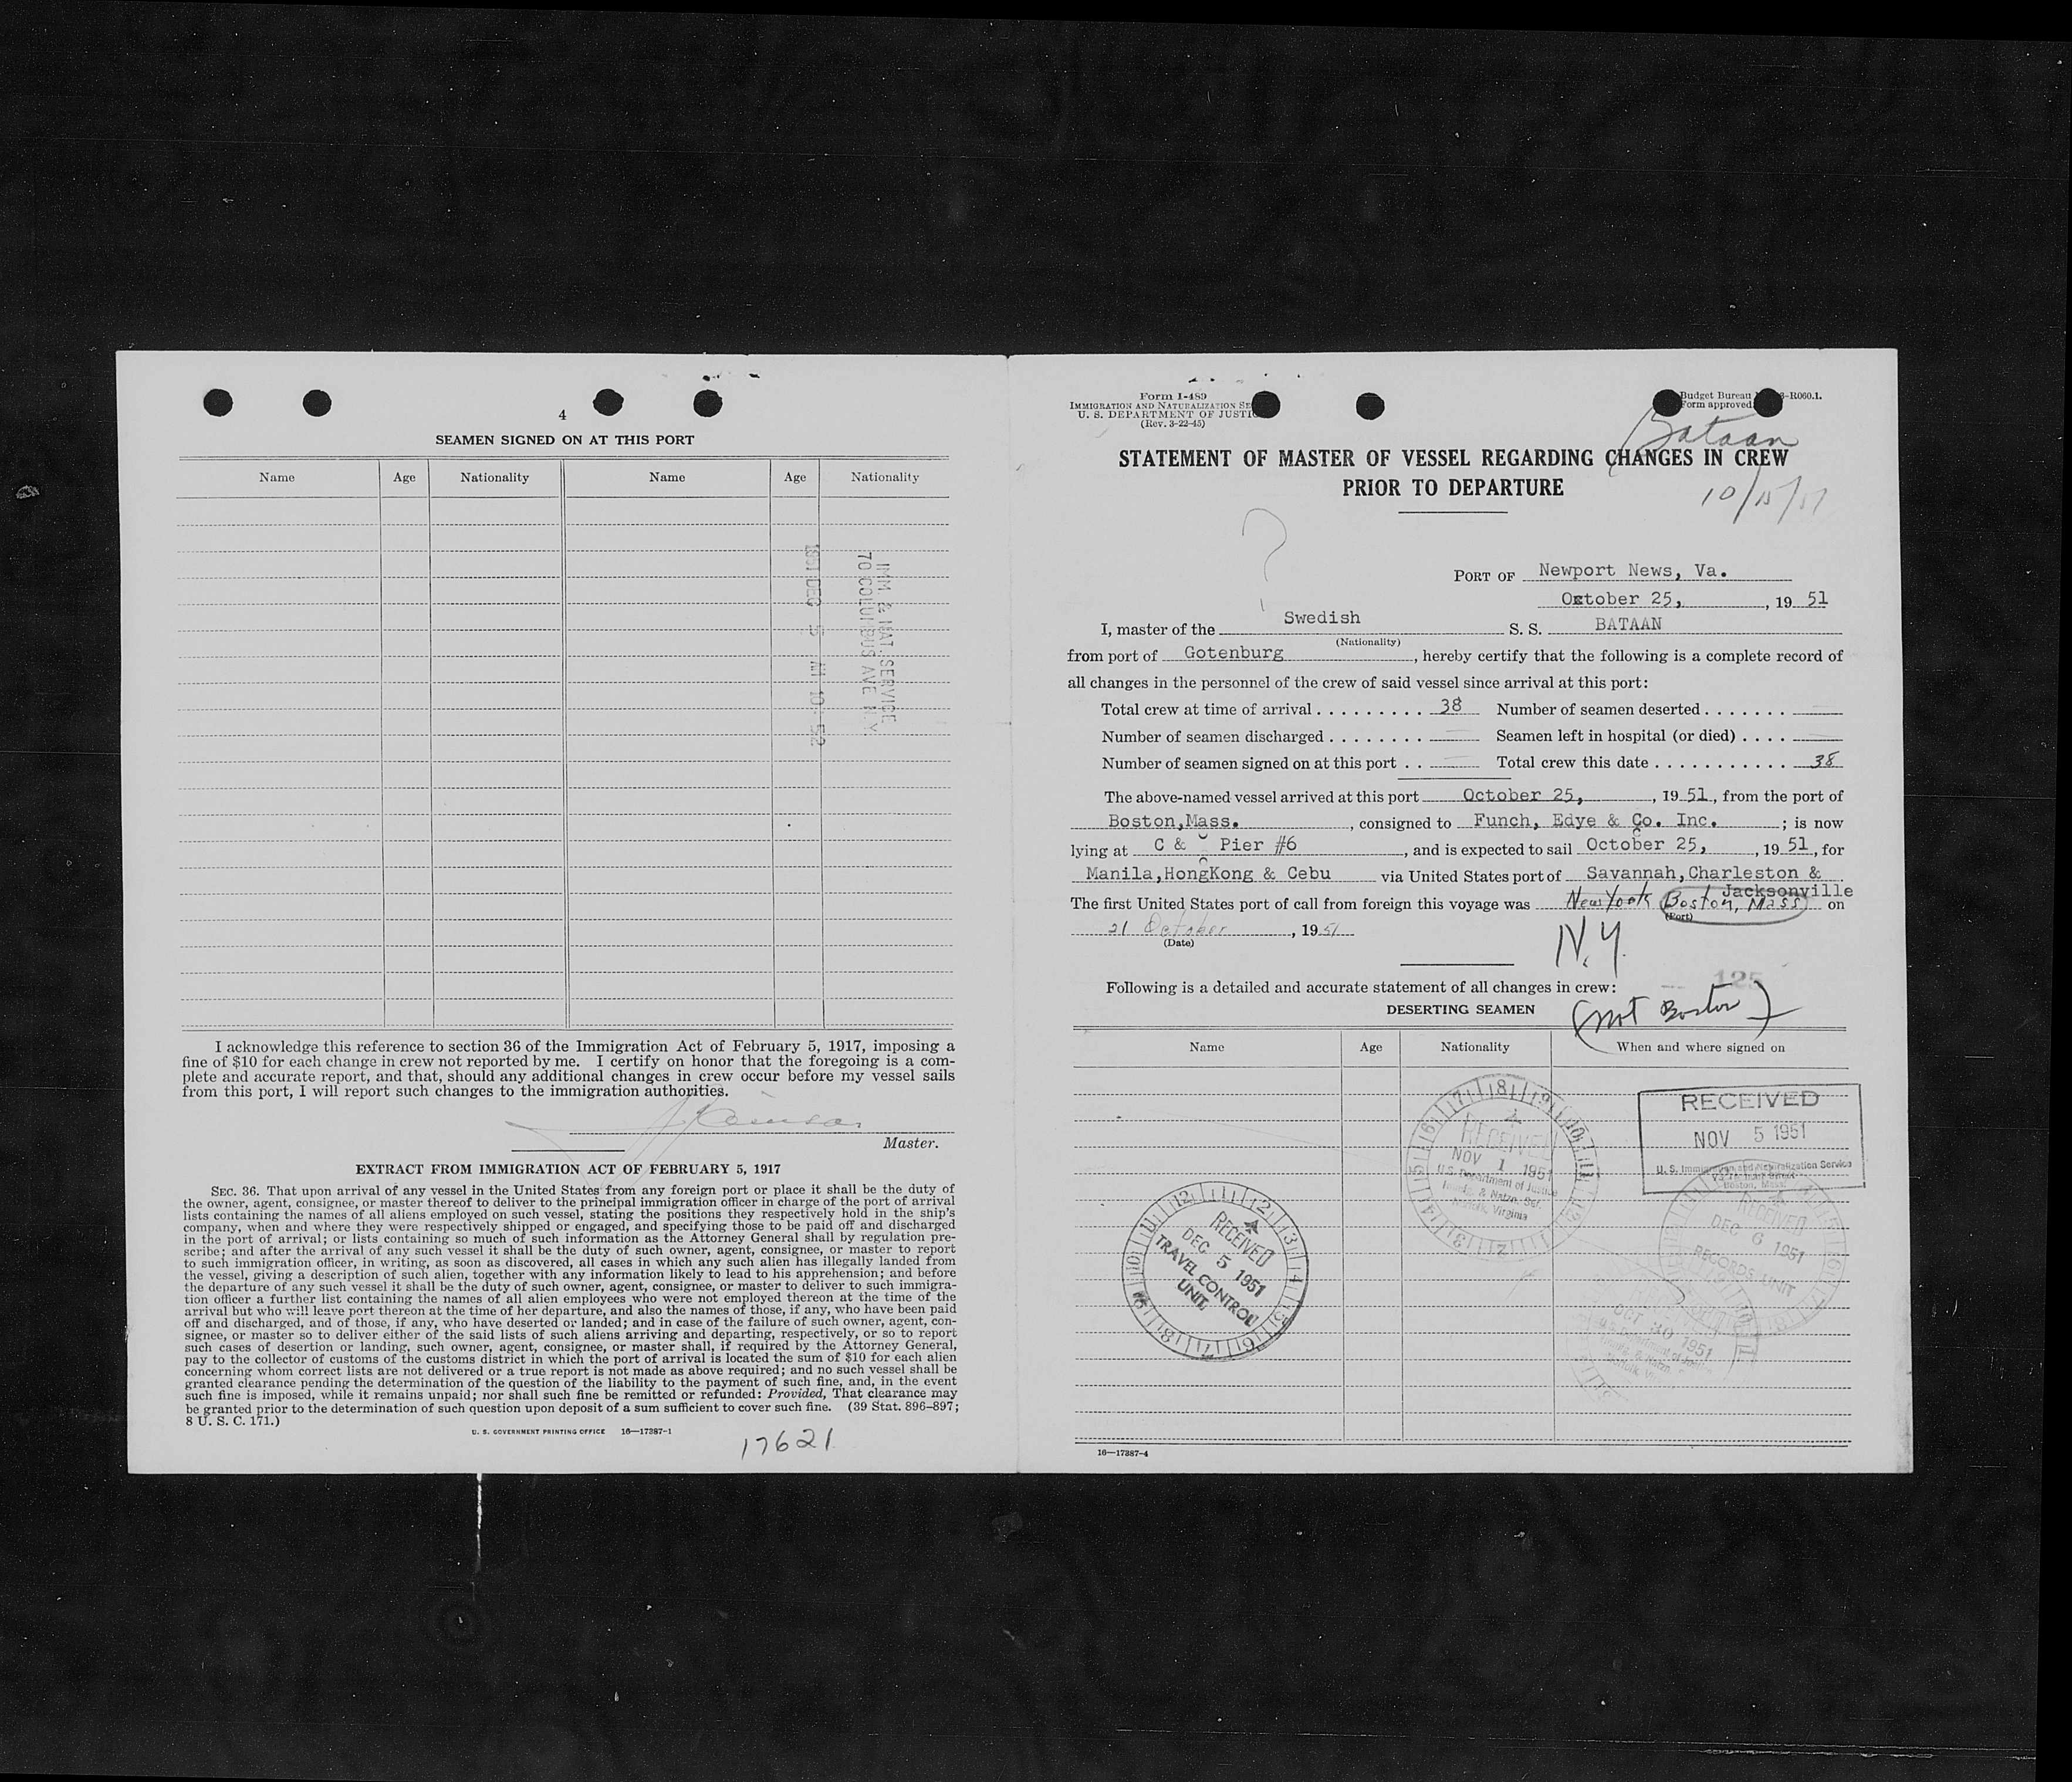 4
SEAMEN SIGNED ON AT THIS PORT
Name Age Nationality Name Age Nationality
IMM. & NAT. SERVICE
70 COLUMBUS AVE N.Y.
1951 DEC 5 AM 10:52
I acknowledge this reference to section 36 of the Immigration Act of February 5, 1917, imposing a
fine of $10 for each change in crew not reported by me. I certify on honor that the foregoing is a com-
plete and accurate report, and that, should any additional changes in crew occur before my vessel sails
from this port, I will report such changes to the immigration authorities.
Master.
EXTRACT FROM IMMIGRATION ACT OF FEBRUARY 5, 1917
SEC. 36. That upon arrival of any vessel in the United States from any foreign port or place it shall be the duty of
the owner, agent, consignee, or master thereof to deliver to the principal immigration officer in charge of the port of arrival
lists containing the names of all aliens employed on such vessel, stating the positions they respectively hold in the ship's
company, when and where they were respectively shipped or engaged, and specifying those to be paid off and discharged
in the port of arrival; or lists containing so much of such information as the Attorney General shall by regulation pre-
scribe; and after the arrival of any such vessel it shall be the duty of such owner, agent, consignee, or master to report
to such immigration officer, in writing, as soon as discovered, all cases in which any such alien has illegally landed from
the vessel, giving a description of such alien, together with any information likely to lead to his apprehension; and before
the departure of any such vessel it shall be the duty of such owner, agent, consignee, or master to deliver to such immigra-
tion officer a further list containing the names of all alien employees who were not employed thereon at the time of the
arrival but who will leave port thereon at the time of her departure, and also the names of those, if any, who have been paid
off and discharged, and of those, if any, who have deserted or landed; and in case of the failure of such owner, agent, con-
signee, or master so to deliver either of the said lists of such aliens arriving and departing, respectively, or so to report
such cases of desertion or landing, such owner, agent, consignee, or master shall, if required by the Attorney General,
pay to the collector of customs of the customs district in which the port of arrival is located the sum of $10 for each alien
concerning whom correct lists are not delivered or a true report is not made as above required; and no such vessel shall be
granted clearance pending the determination of the question of the liability to the payment of such fine, and, in the event
such fine is imposed, while it remains unpaid; nor shall such fine be remitted or refunded: Provided, That clearance may
be granted prior to the determination of such question upon deposit of a sum sufficient to cover such fine. (39 Stat. 896–897;
8 U. S. C. 171.)
U. S. GOVERNMENT PRINTING OFFICE 16—17387-1
17621
Form I-489
IMMIGRATION AND NATURALIZATION SE
U. S. DEPARTMENT OF JUSTIC
(Rev. 3-22-45)
Budget Bureau 3-R060.1.
Form approved
Bataan
STATEMENT OF MASTER OF VESSEL REGARDING CHANGES IN CREW
PRIOR TO DEPARTURE
10/15/51
?
PORT OF Newport News, Va.
October 25, , 19 51
I, master of the Swedish S. S. BATAAN
(Nationality)
from port of Gotenburg, hereby certify that the following is a complete record of
all changes in the personnel of the crew of said vessel since arrival at this port:
Total crew at time of arrival 38 Number of seamen deserted
Number of seamen discharged Seamen left in hospital (or died)
Number of seamen signed on at this port Total crew this date 38
The above-named vessel arrived at this port October 25, , 19 51, from the port of
Boston,Mass. , consigned to Funch, Edye & Co. Inc. ; is now
lying at C & O Pier #6 , and is expected to sail October 25, , 19 51, for
Manila,HongKong & Cebu via United States port of Savannah,Charleston &
Jacksonville
The first United States port of call from foreign this voyage was New York Boston, Mass on
(Port)
21 October , 19 51
(Date)
N.Y.
125
Following is a detailed and accurate statement of all changes in crew:
(not Boston)
DESERTING SEAMEN
Name Age Nationality When and where signed on
RECEIVED
NOV 1 1951
U.S. Department of Justice
Immig. & Natzn. Ser.
Norfolk, Virginia
RECEIVED
NOV 5 1951
U. S. Immigration and Naturalization Service
Boston, Mass.
RECEIVED
DEC 5 1951
TRAVEL CONTROL
UNIT
RECEIVED
DEC 6 1951
RECORDS UNIT
OCT 30 1951
16—17387-4